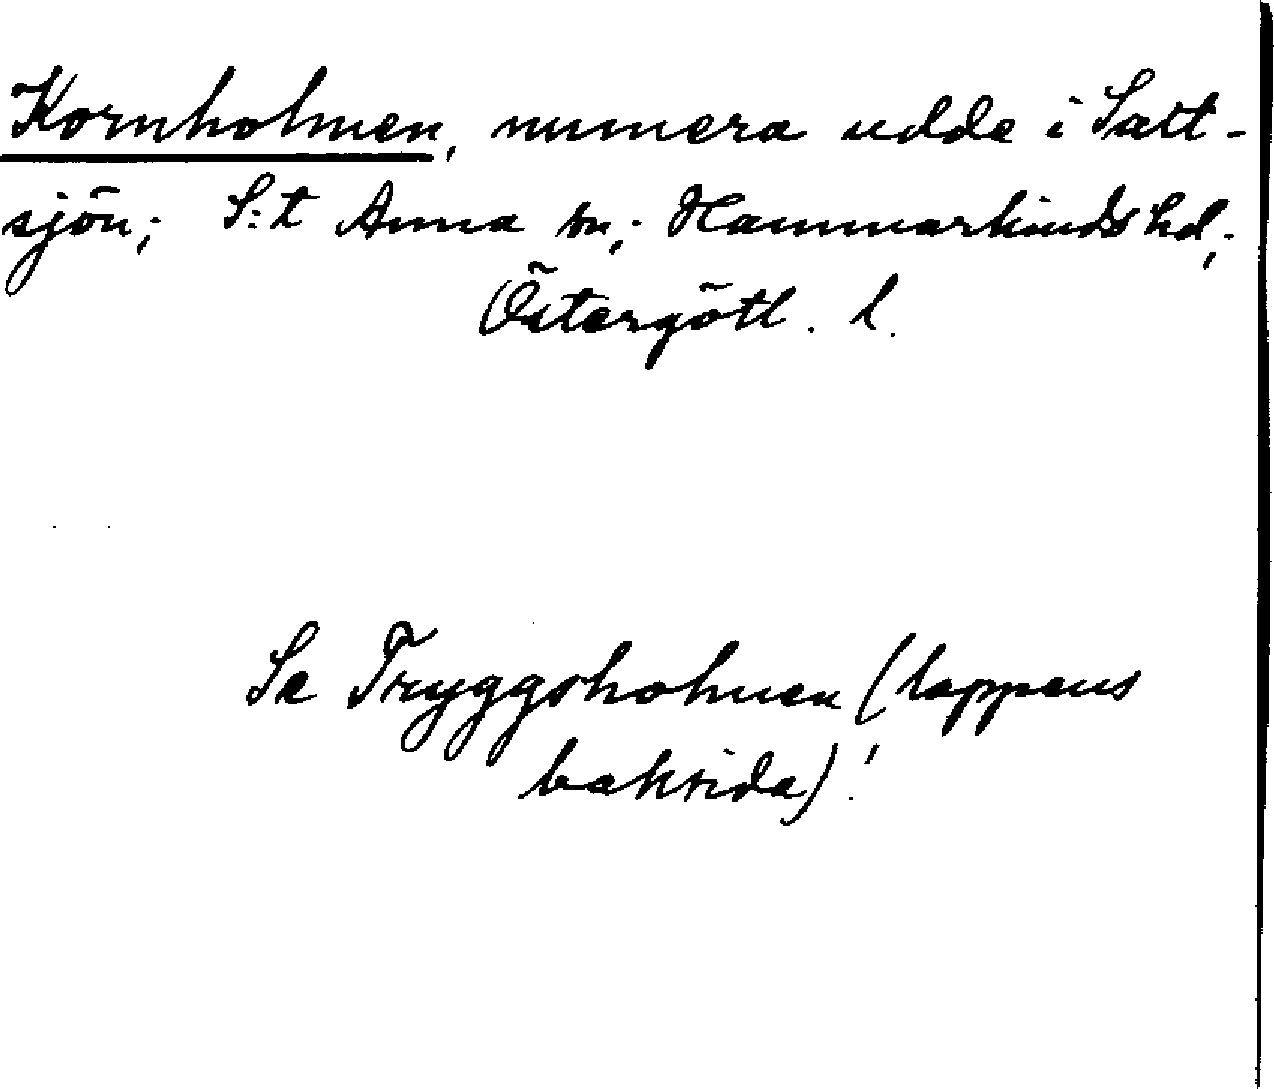 Kornholmen, numera udde i Salt-
sjön; S:t Anna sn; Hammarkinds hd;
Östergötl. l.
Se Tryggsholmen (lappens
baksida)!